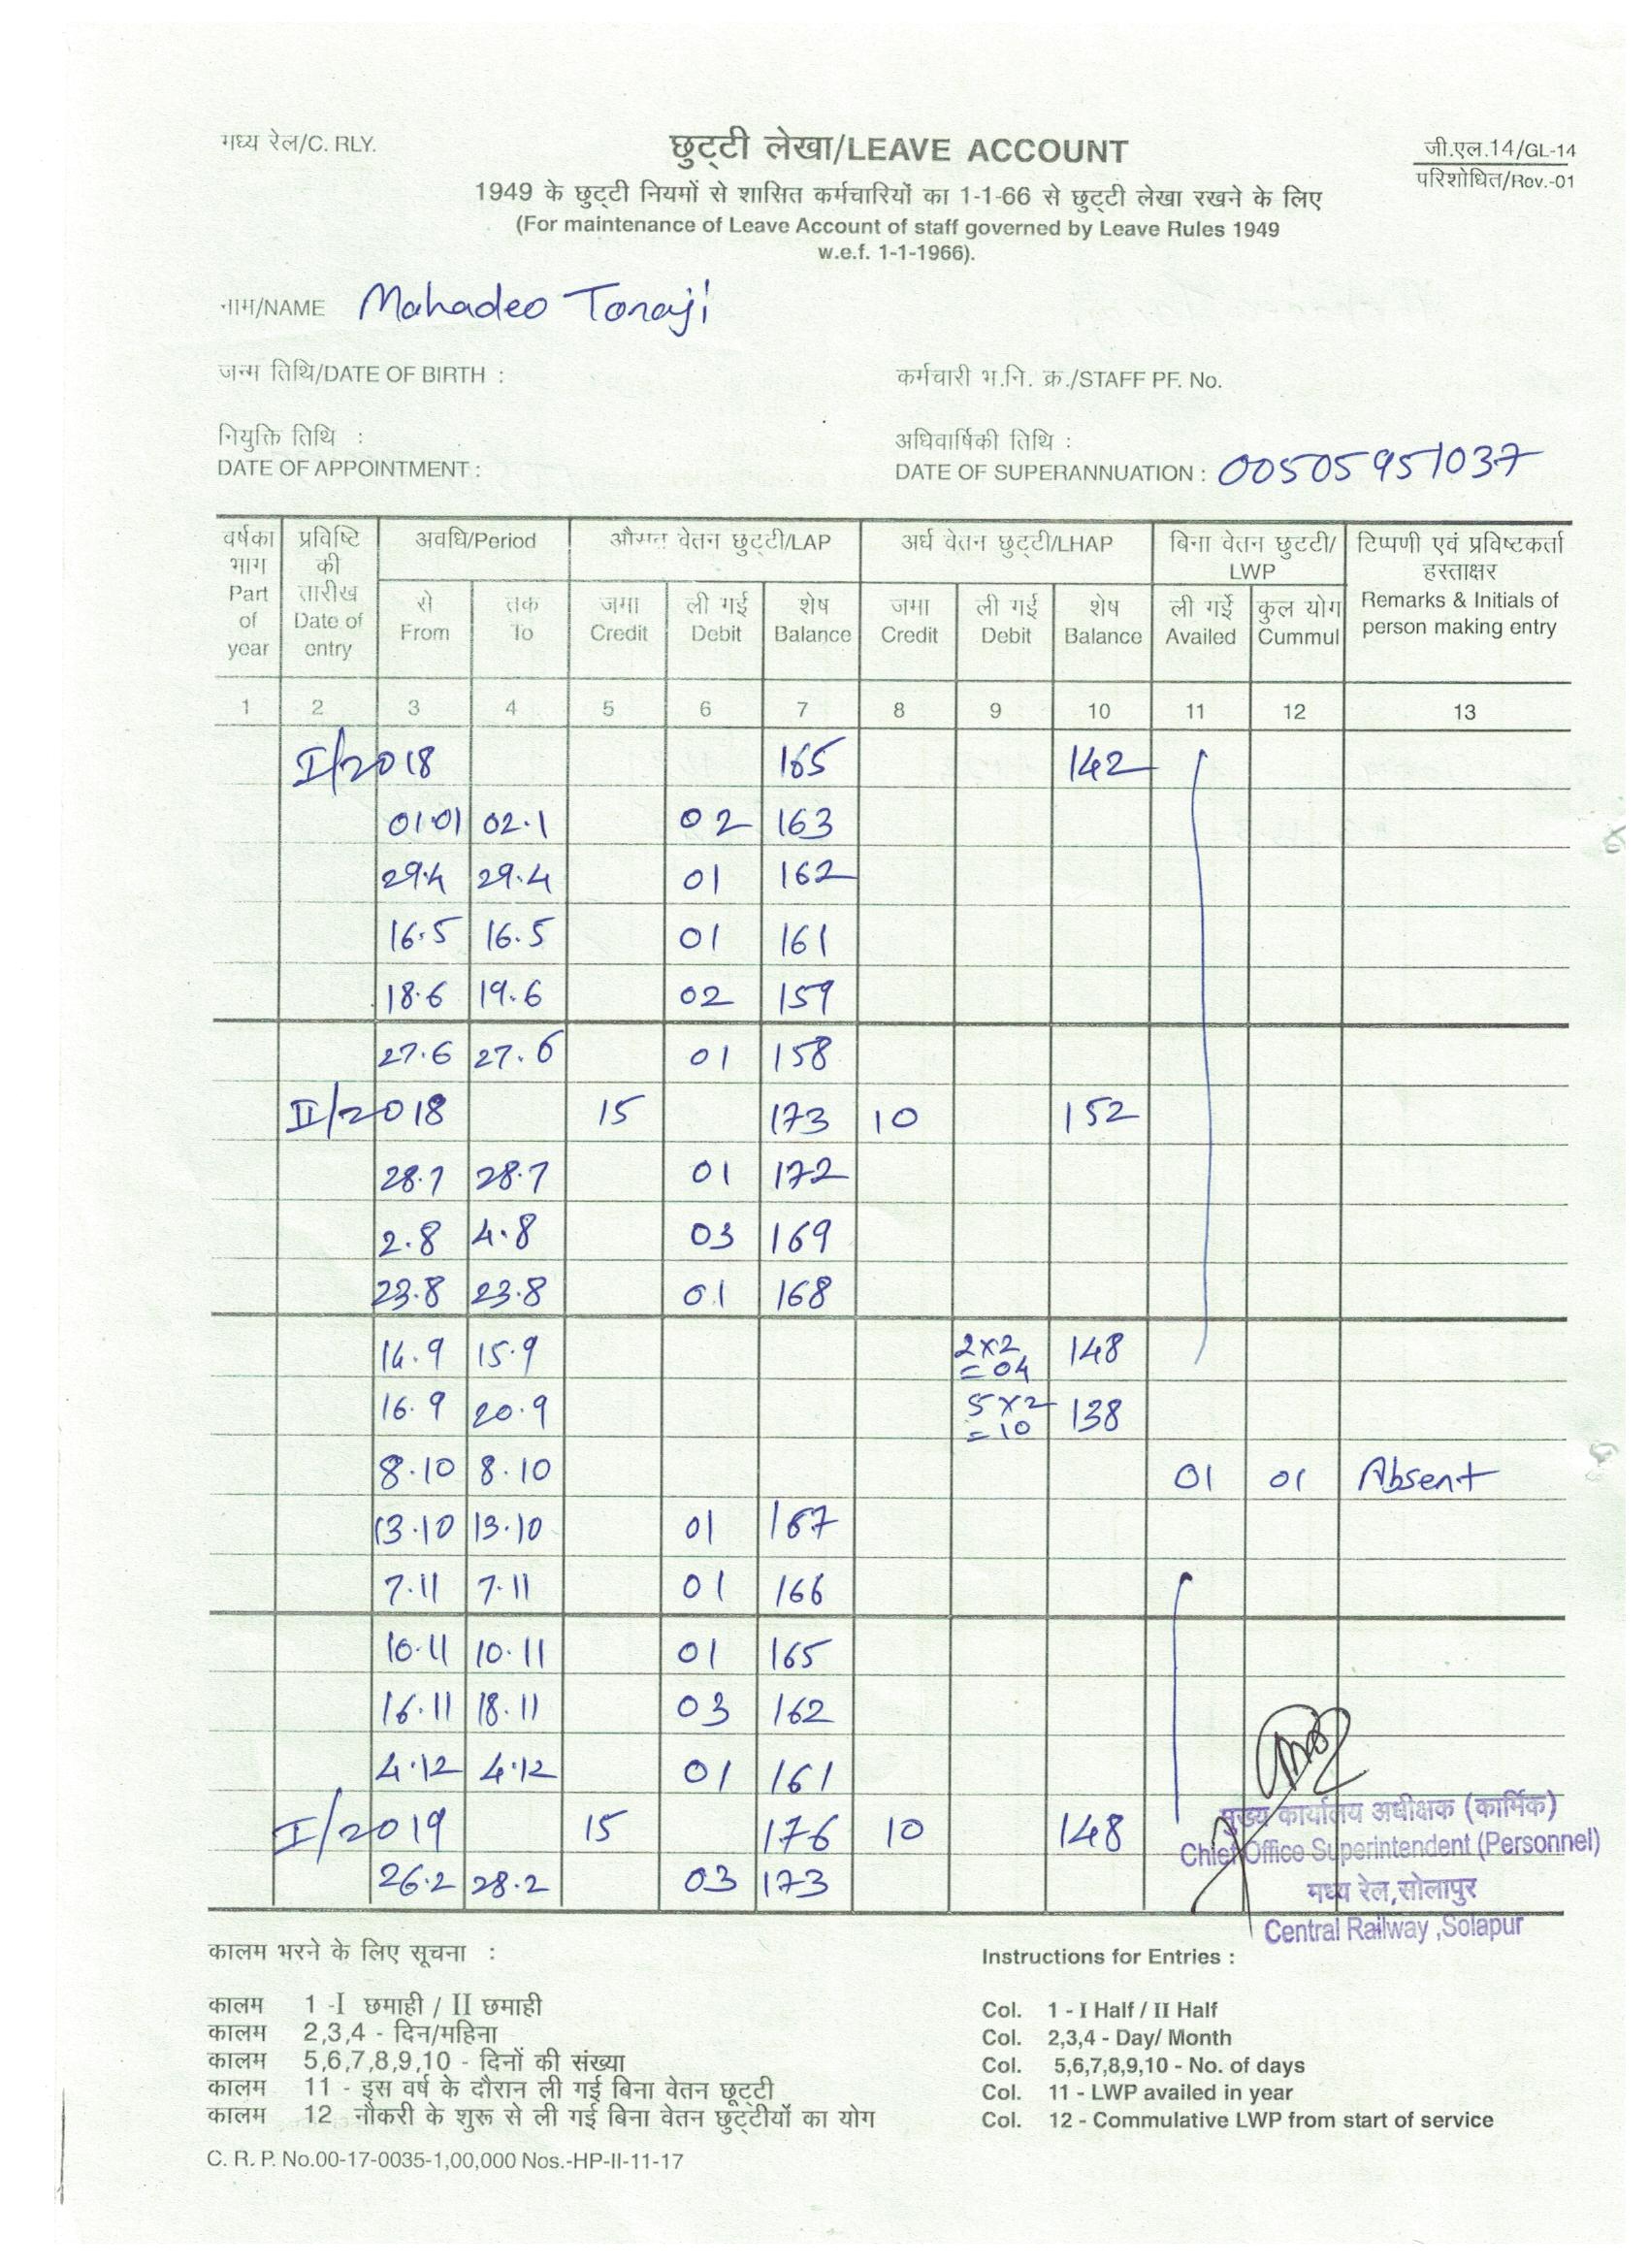 मध्य रेल/C. RLY.
छुट्टी लेखा/LEAVE ACCOUNT
जी.एल.14/GL-14
परिशोधित/Rev.-01
1949 के छुट्टी नियमों से शासित कर्मचारियों का 1-1-66 से छुट्टी लेखा रखने के लिए
(For maintenance of Leave Account of staff governed by Leave Rules 1949
w.e.f. 1-1-1966).
नाम/NAME Mahadeo Tonaji
जन्म तिथि/DATE OF BIRTH :
कर्मचारी भ.नि. क्र./STAFF PF. No.
नियुक्ति तिथि :
DATE OF APPOINTMENT :
अधिवार्षिकी तिथि :
DATE OF SUPERANNUATION : 00505951037
वर्षका भाग Part of year
प्रविष्टि की तारीख Date of entry
अवधि/Period
औसत वेतन छुट्टी/LAP
अर्ध वेतन छुट्टी/LHAP
बिना वेतन छुटटी/ LWP
टिप्पणी एवं प्रविष्टकर्ता हस्ताक्षर
Remarks & Initials of person making entry
से From तक To जमा Credit ली गई Debit शेष Balance जमा Credit ली गई Debit शेष Balance ली गईे Availed कुल योग Cummul
1 2 3 4 5 6 7 8 9 10 11 12 13
I/2018 165 142
01.01 02.1 02 163
29.4 29.4 01 162
16.5 16.5 01 161
18.6 19.6 02 159
27.6 27.6 01 158
II/2018 15 173 10 152
28.7 28.7 01 172
2.8 4.8 03 169
23.8 23.8 01 168
14.9 15.9 2x2 = 04 148
16.9 20.9 5x2 = 10 138
8.10 8.10 01 01 Absent
13.10 13.10 01 167
7.11 7.11 01 166
10.11 10.11 01 165
16.11 18.11 03 162
4.12 4.12 01 161
I/2019 15 176 10 148
26.2 28.2 03 173
मुख्य कार्यालय अधीक्षक (कार्मिक)
Chief Office Superintendent (Personnel)
मध्य रेल,सोलापुर
Central Railway ,Solapur
कालम भरने के लिए सूचना :
कालम 1 -I छमाही / II छमाही
कालम 2,3,4 - दिन/महिना
कालम 5,6,7,8,9,10 - दिनों की संख्या
कालम 11 - इस वर्ष के दौरान ली गई बिना वेतन छूट्टी
कालम 12 नौकरी के शुरू से ली गई बिना वेतन छुट्टीयों का योग
Instructions for Entries :
Col. 1 - I Half / II Half
Col. 2,3,4 - Day/ Month
Col. 5,6,7,8,9,10 - No. of days
Col. 11 - LWP availed in year
Col. 12 - Commulative LWP from start of service
C. R. P. No.00-17-0035-1,00,000 Nos.-HP-II-11-17